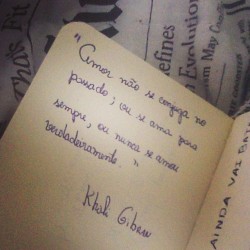 "Amor não se conjuga no
passado; ou se ama para
sempre, ou nunca se amou
verdadeiramente."
Khali Gibran
AINDA VAI
That's Fit
efines
Evolution
May Conc